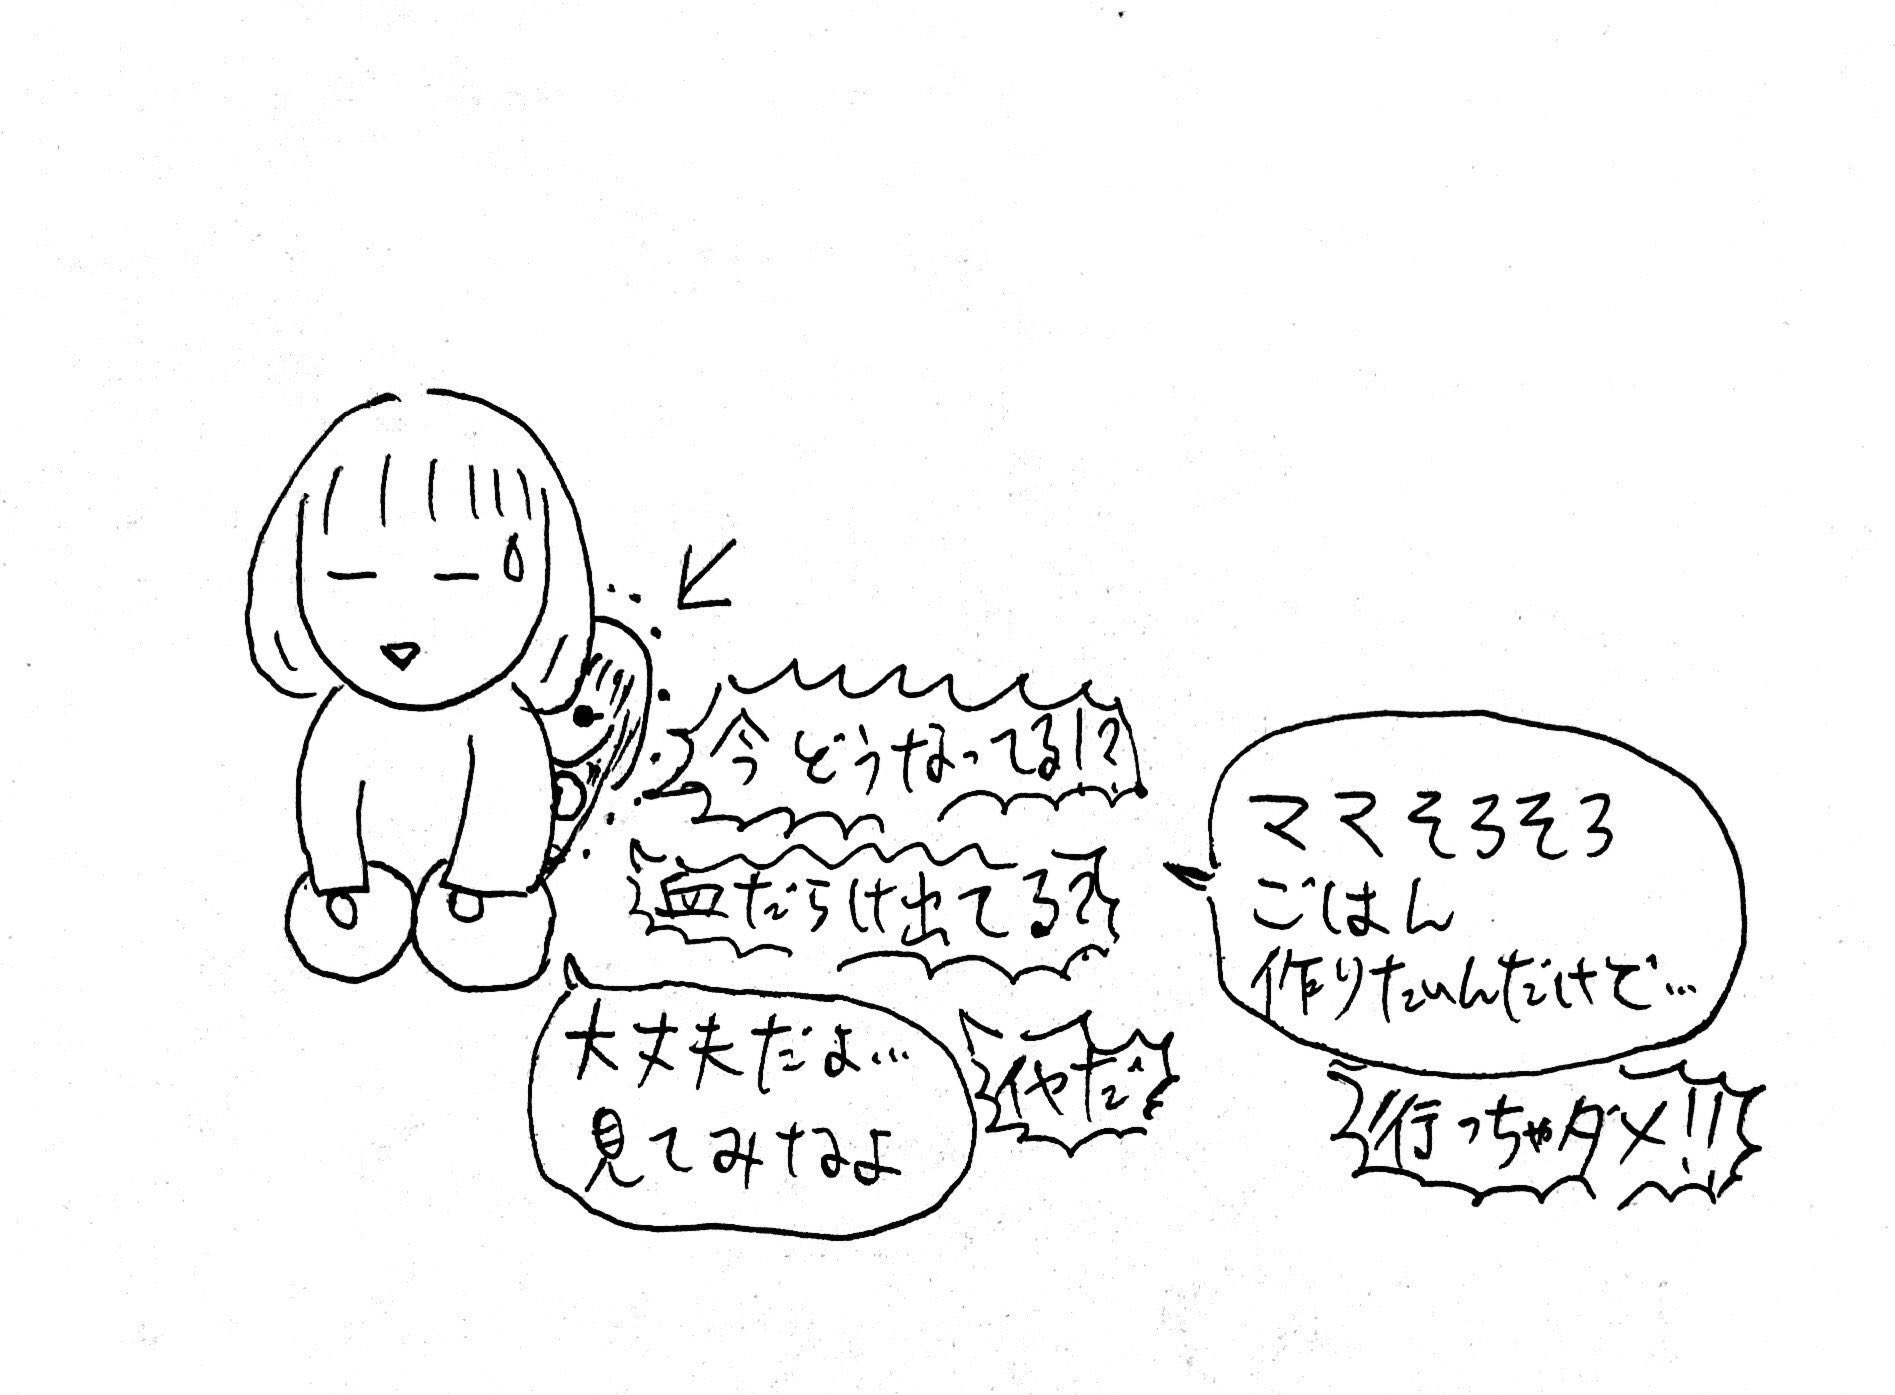 今どうなってる!?
血だらけ出てる?
大丈夫だよ…
見てみなよ
イヤだ
ママそろそろ
ごはん
作りたいんだけど…
行っちゃダメ!!